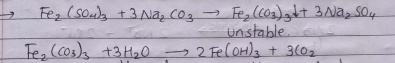 → Fe₂(SO₄)₃ + 3Na₂CO₃ → Fe₂(CO₃)₃↓ + 3Na₂SO₄
unstable.
Fe₂(CO₃)₃ + 3H₂O → 2Fe(OH)₃ + 3CO₂